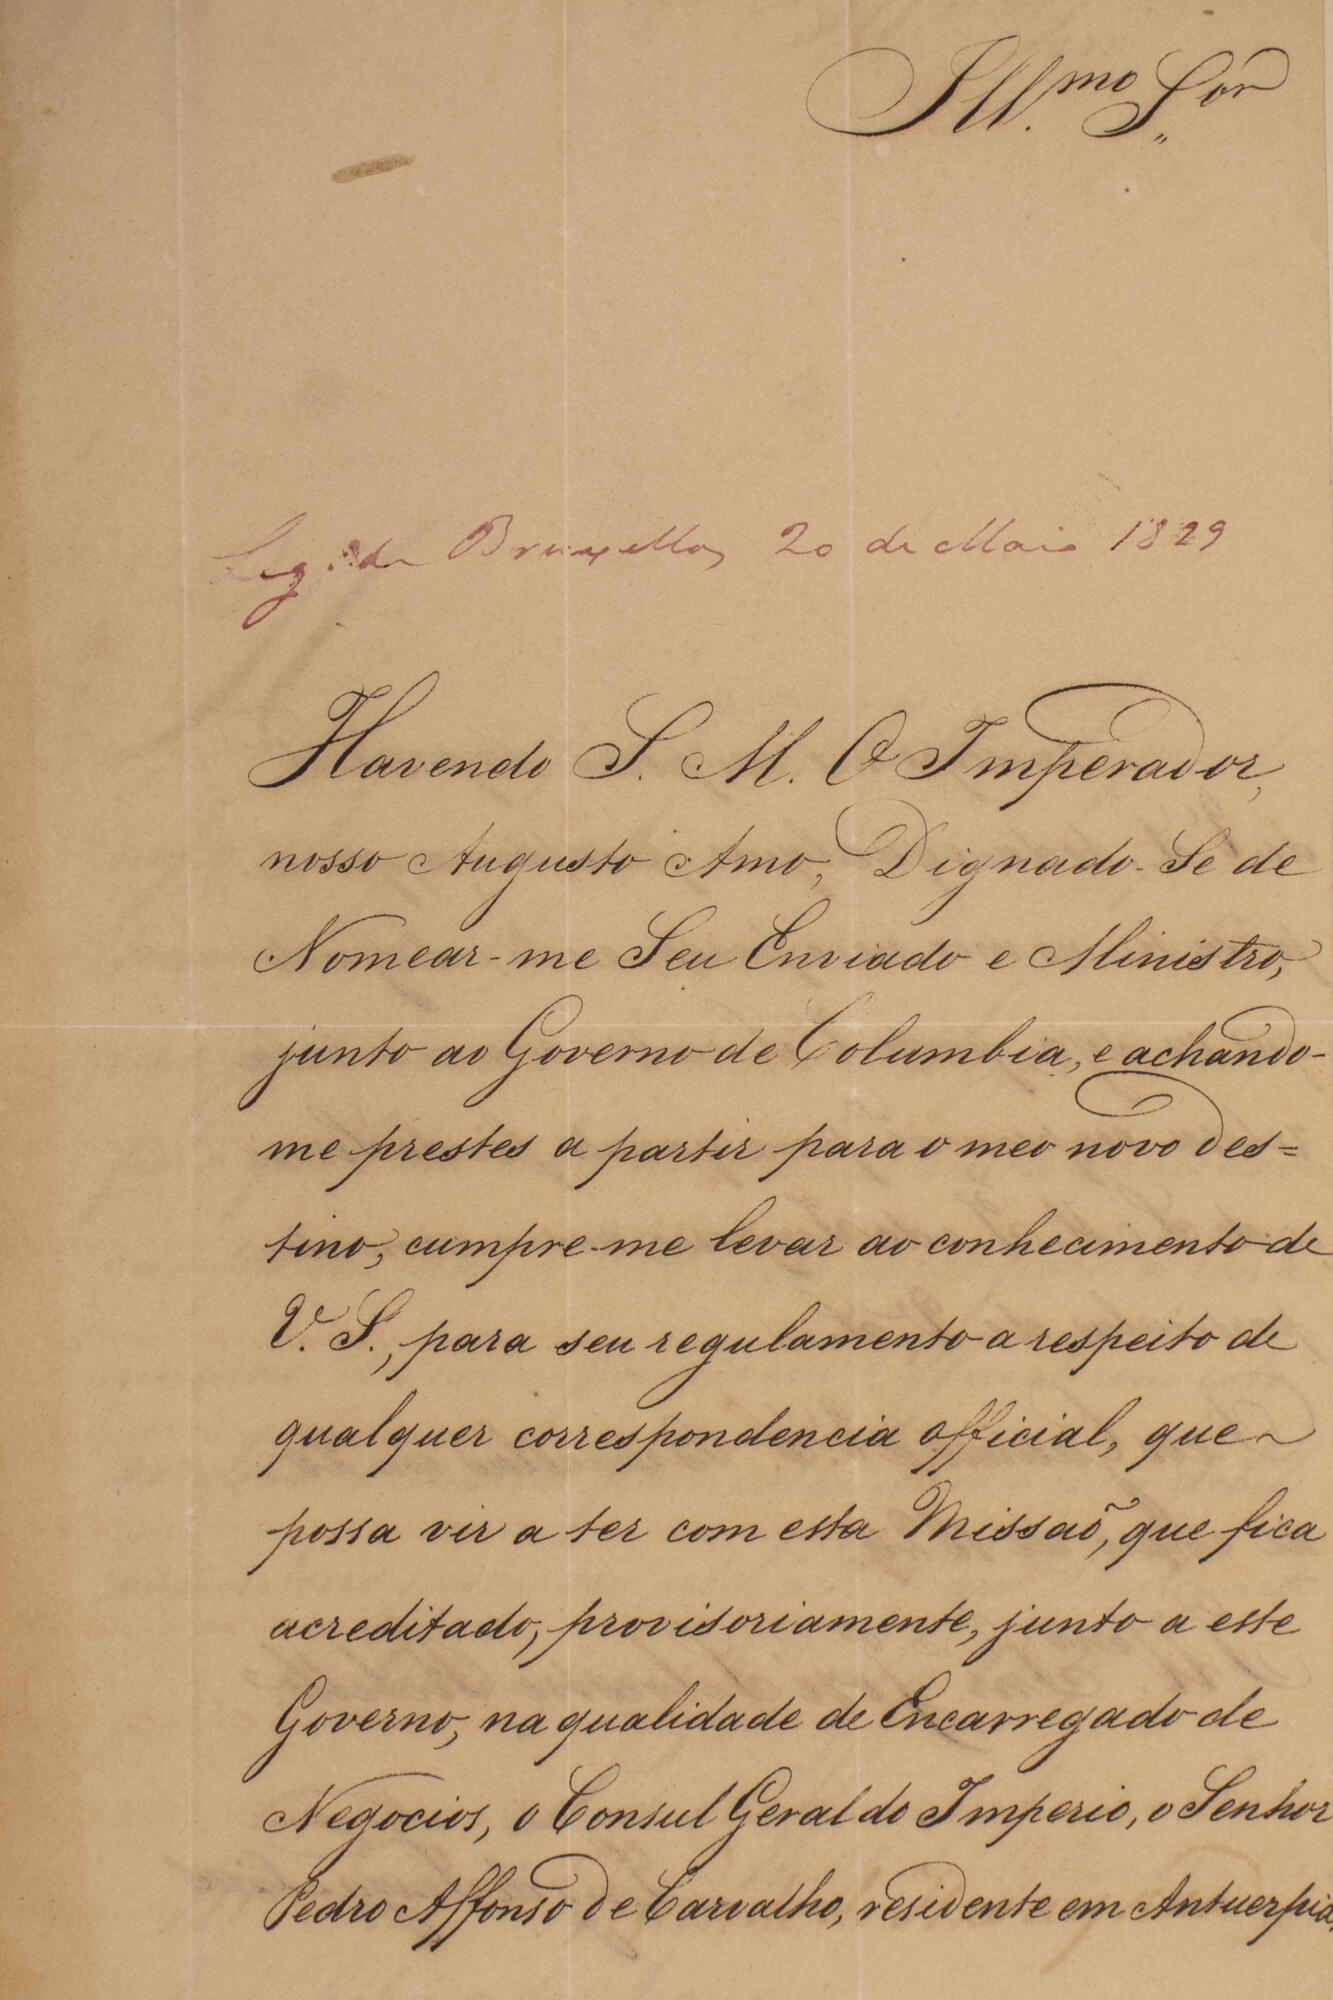 Ill.mo Sor
Leg. de Bruxellas 20 de Maio 1829
Havendo S. M. O Imperador,
nosso Augusto Amo, Dignado-Se de
Nomear-me Seu Enviado e Ministro,
junto ao Governo de Columbia, e achando-
me prestes a partir para o meo novo des=
tino, cumpre-me levar ao conhecimento de
V. S., para seu regulamento a respeito de
qualquer correspondencia official, que
possa vir a ter com esta Missaõ, que fica
acreditado, provisoriamente, junto a este
Governo, na qualidade de Encarregado de
Negocios, o Consul Geral do Imperio, o Senhor
Pedro Affonso de Carvalho, residente em Antuerpia,